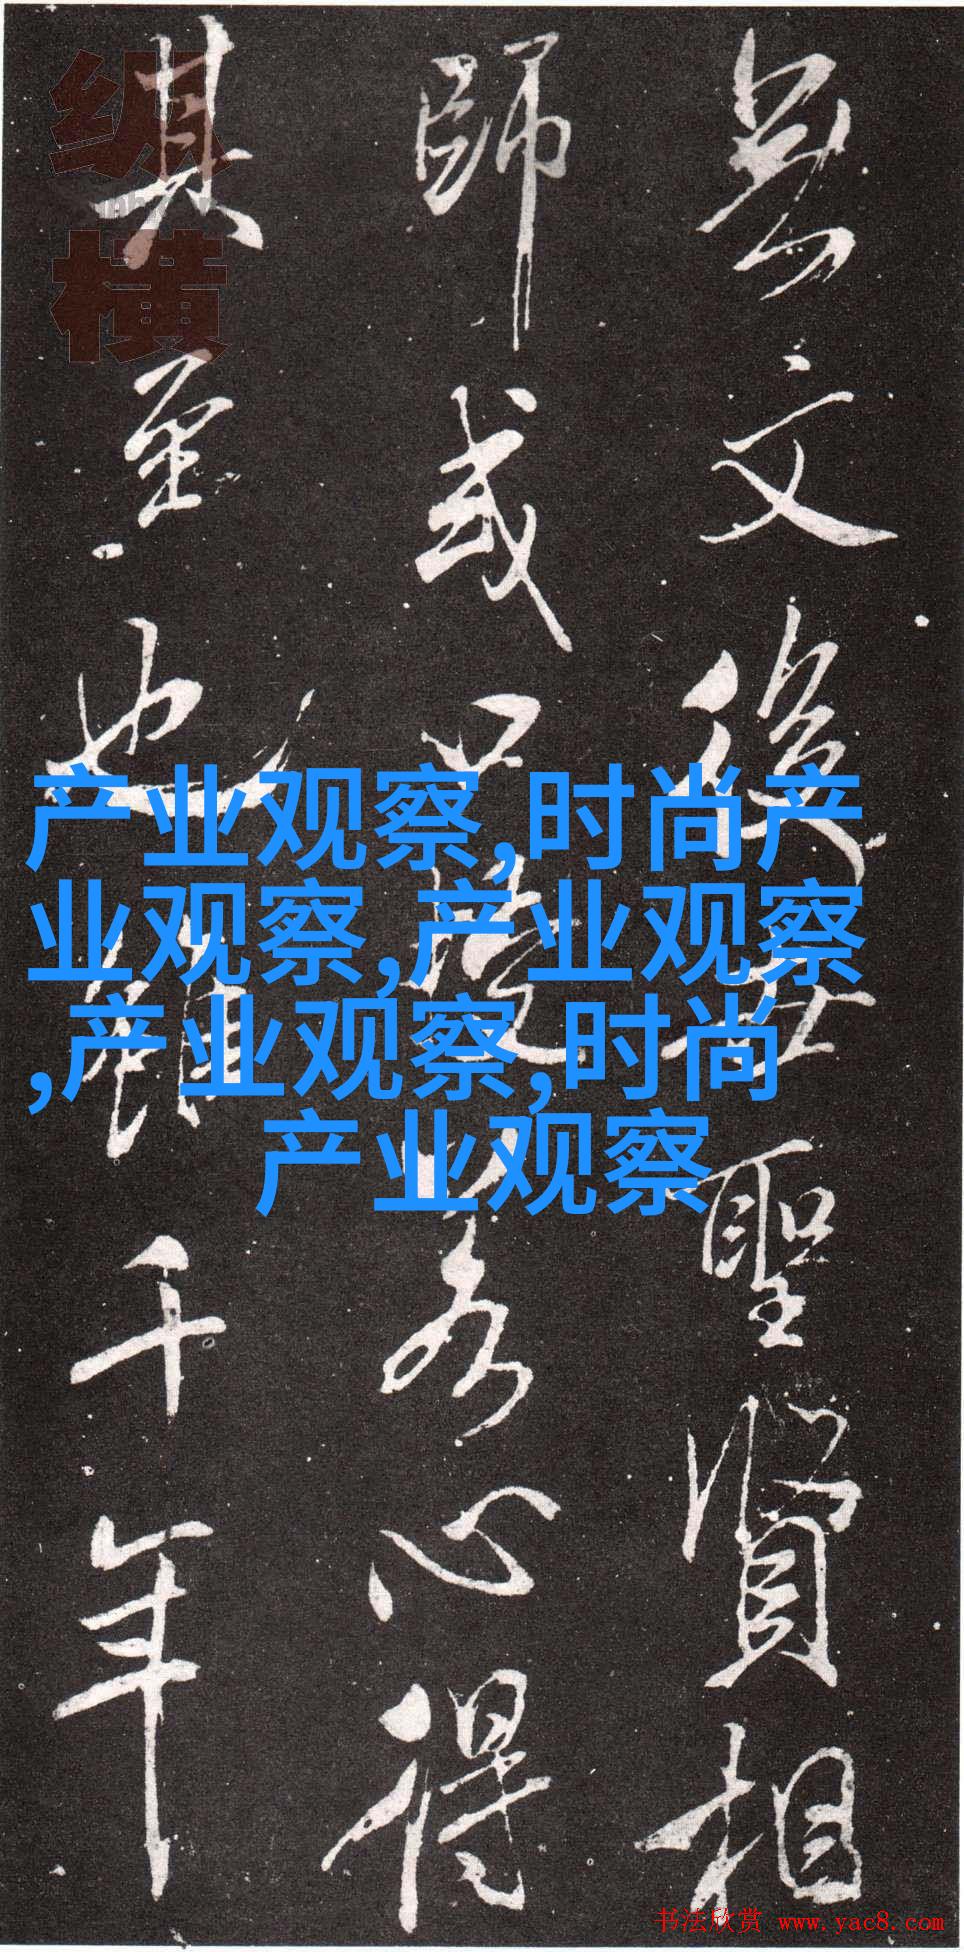 文後世聖賢相
師或心得
其至也雖千年
横
产业观察,时尚产
业观察,产业观察
,产业观察,时尚
产业观察
书法欣赏 www.yac8.com